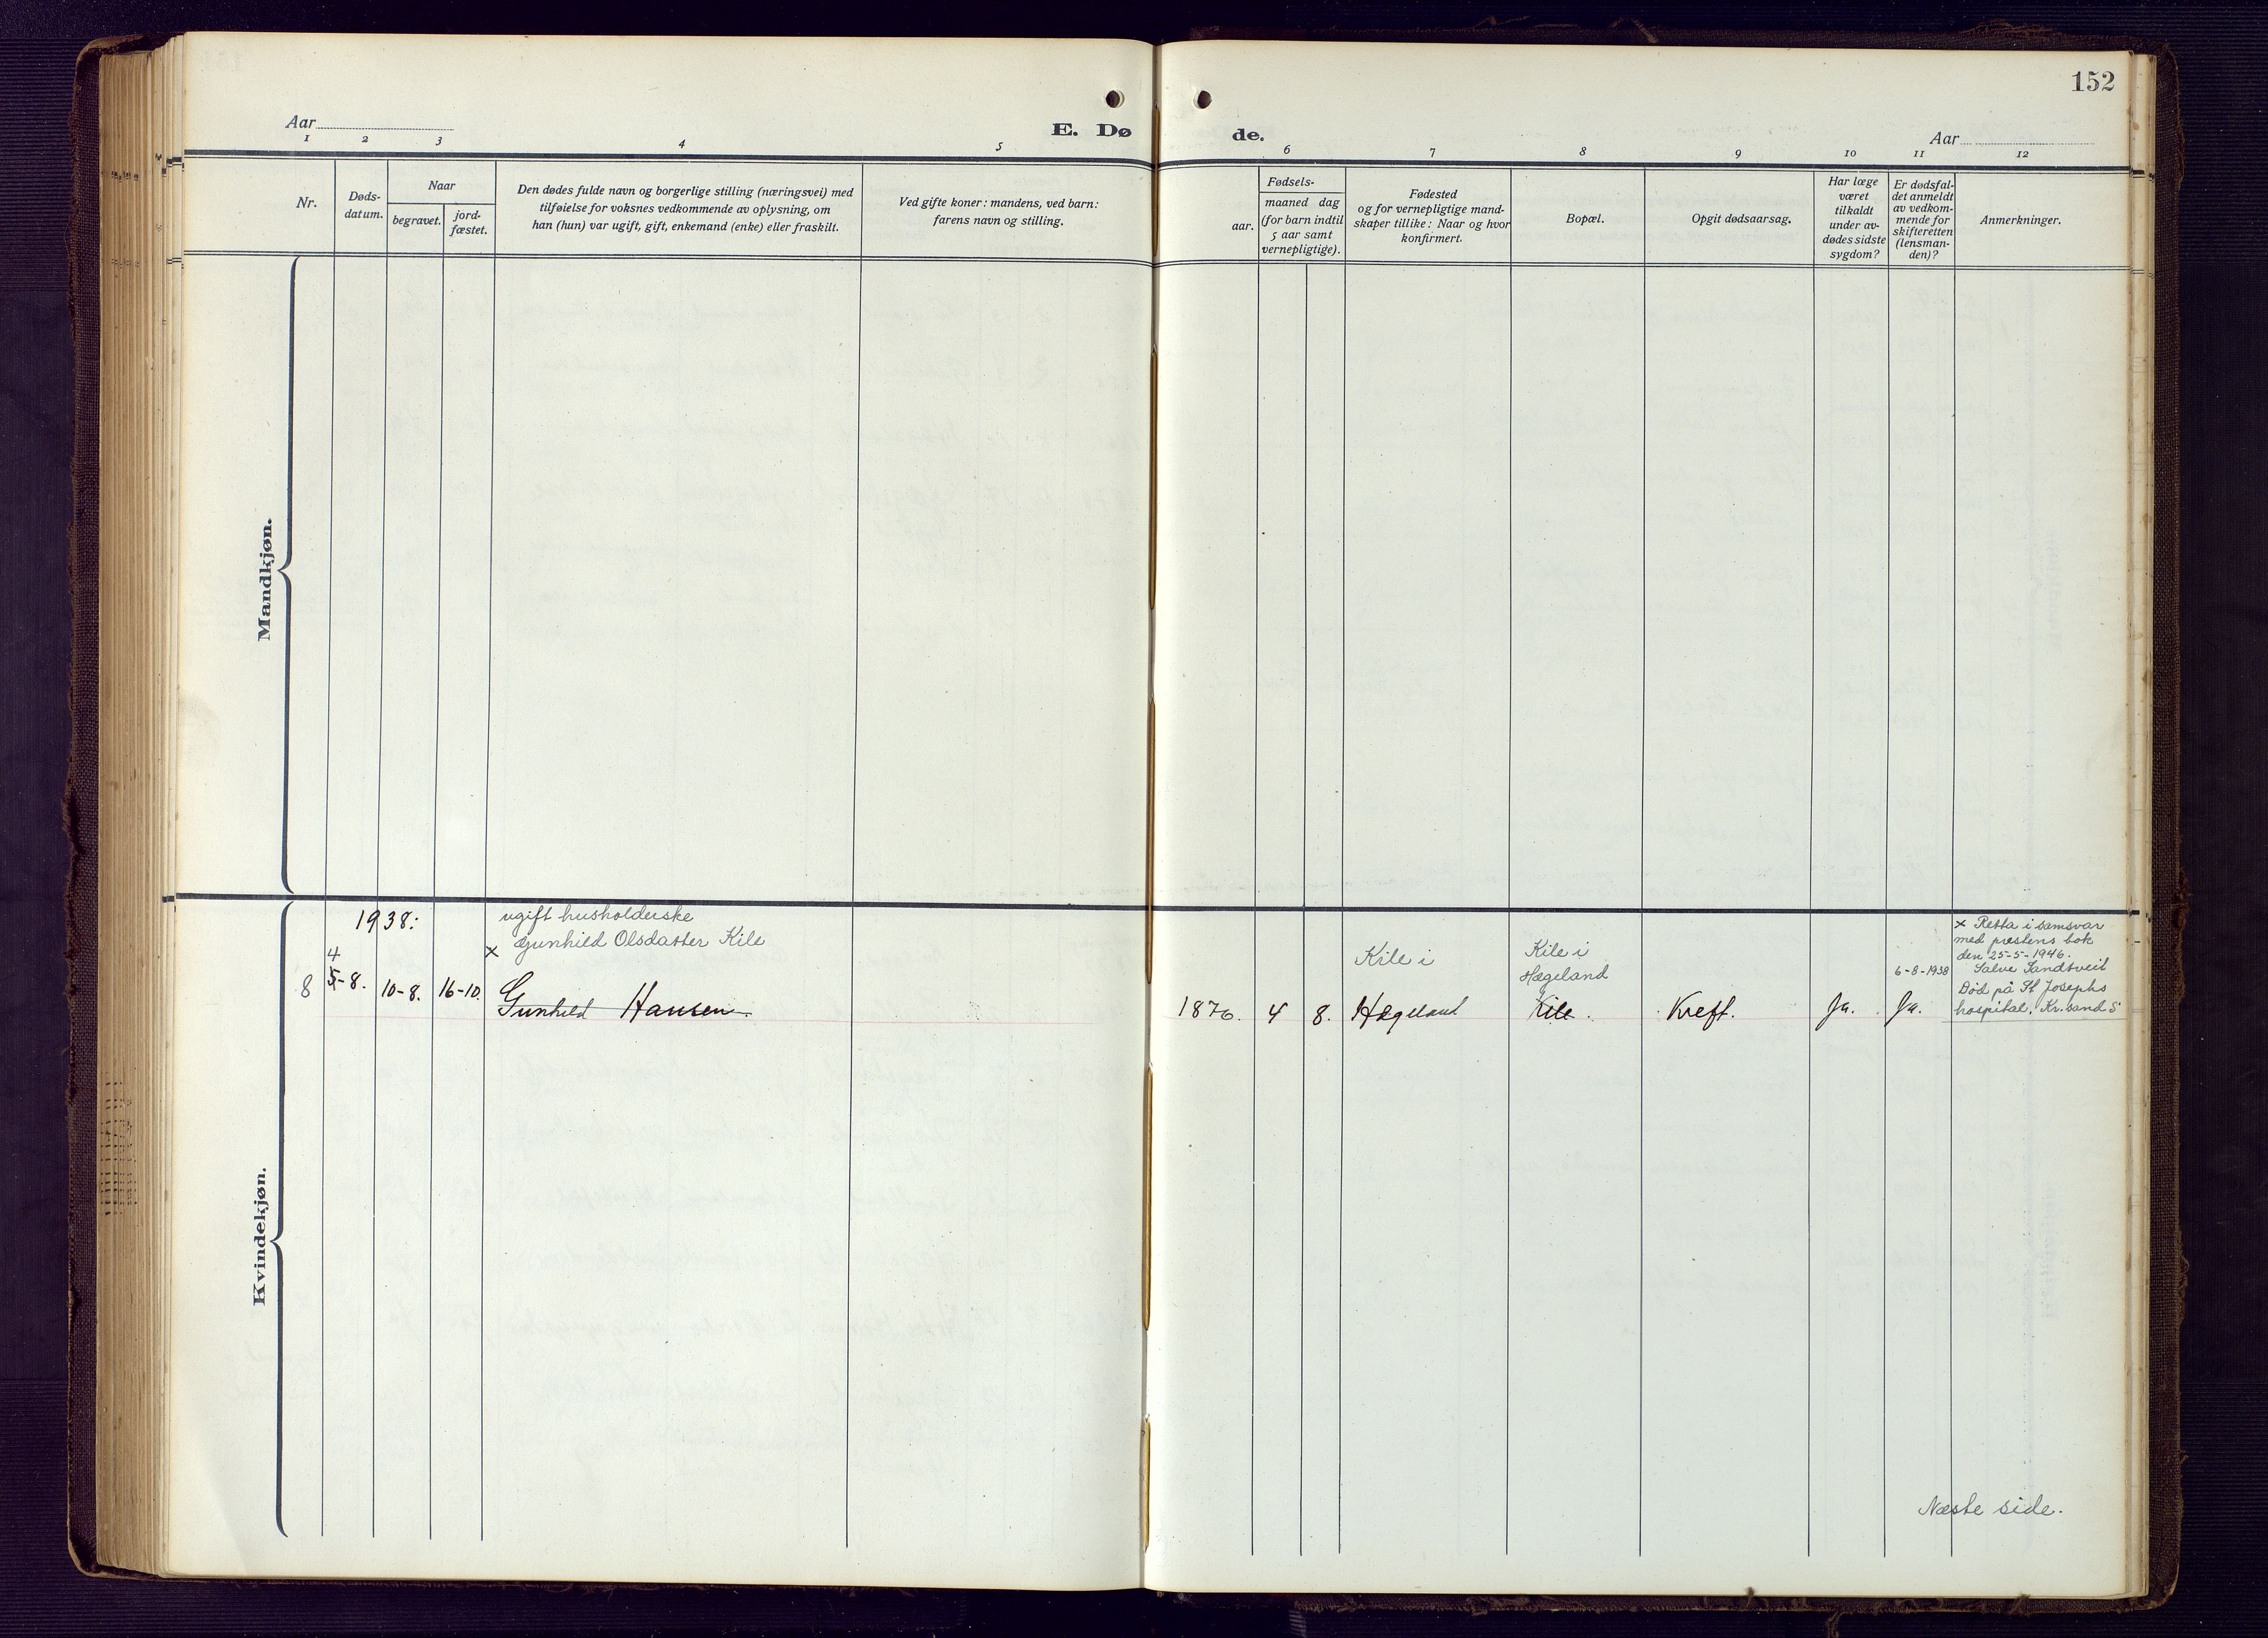 152
Aar
E. Dø
de.
Aar
1 2 3 4 5
6 7 8 9 10 11 12
Nr.
Døds-
datum.
Naar
begravet.
jord-
fæstet.
Den dødes fulde navn og borgerlige stilling (næringsvei) med
tilføielse for voksnes vedkommende av oplysning, om
han (hun) var ugift, gift, enkemand (enke) eller fraskilt.
Ved gifte koner: mandens, ved barn:
farens navn og stilling.
Fødsels-
aar.
maaned dag
(for barn indtil
5 aar samt
vernepligtige).
Fødested
og for vernepligtige mand-
skaper tillike: Naar og hvor
konfirmert.
Bopæl.
Opgit dødsaarsag.
Har læge
været
tilkaldt
under av-
dødes sidste
sygdom?
Er dødsfal-
det anmeldt
av vedkom-
mende for
skifteretten
(lensman-
den)?
Anmerkninger.
Mandkjøn.
Kvindekjøn.
1938:
8
4
5-8.
10-8.
16-10.
ugift husholderske
x Gunhild Olsdatter Kile
Gunhild Hansen
1876.
4
8.
Kile i
Hægeland
Kile i
Hægeland
Kile.
Kreft.
Ja.
6-8-1938
Ja.
x Retta i samsvar
med prestens bok
den 25-5-1946.
Salve Sandtveit
Död på St Josephs
hospital, Kr.sand S
Næste side.